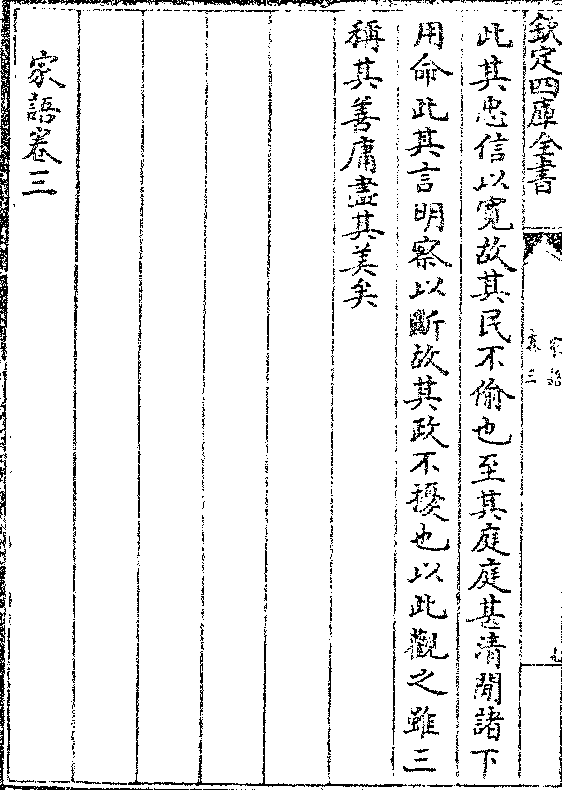 欽定四庫全書
家語
卷三
此其忠信以寛故其民不偷也至其庭庭甚清閒諸下
用命此其言明察以斷故其政不擾也以此觀之雖三
稱其善庸盡其美矣
家語卷三